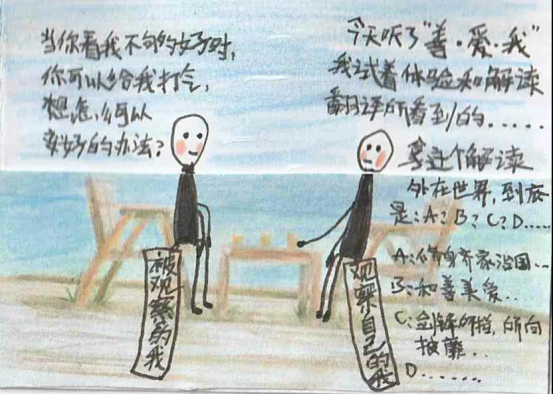 当你看我不够的好时,
你可以给我打气,
想怎么可以
变好的办法?
今天听了“善·爱·我”
我试着体验和解读
翻译所看到的.....
拿这个解读
外在世界,到底
是:A?B?C?D.....
A:修身齐家治国...
B:和善美爱...
C:剑锋所指,所向
披靡...
D.......
被观察的我
观察自己的我